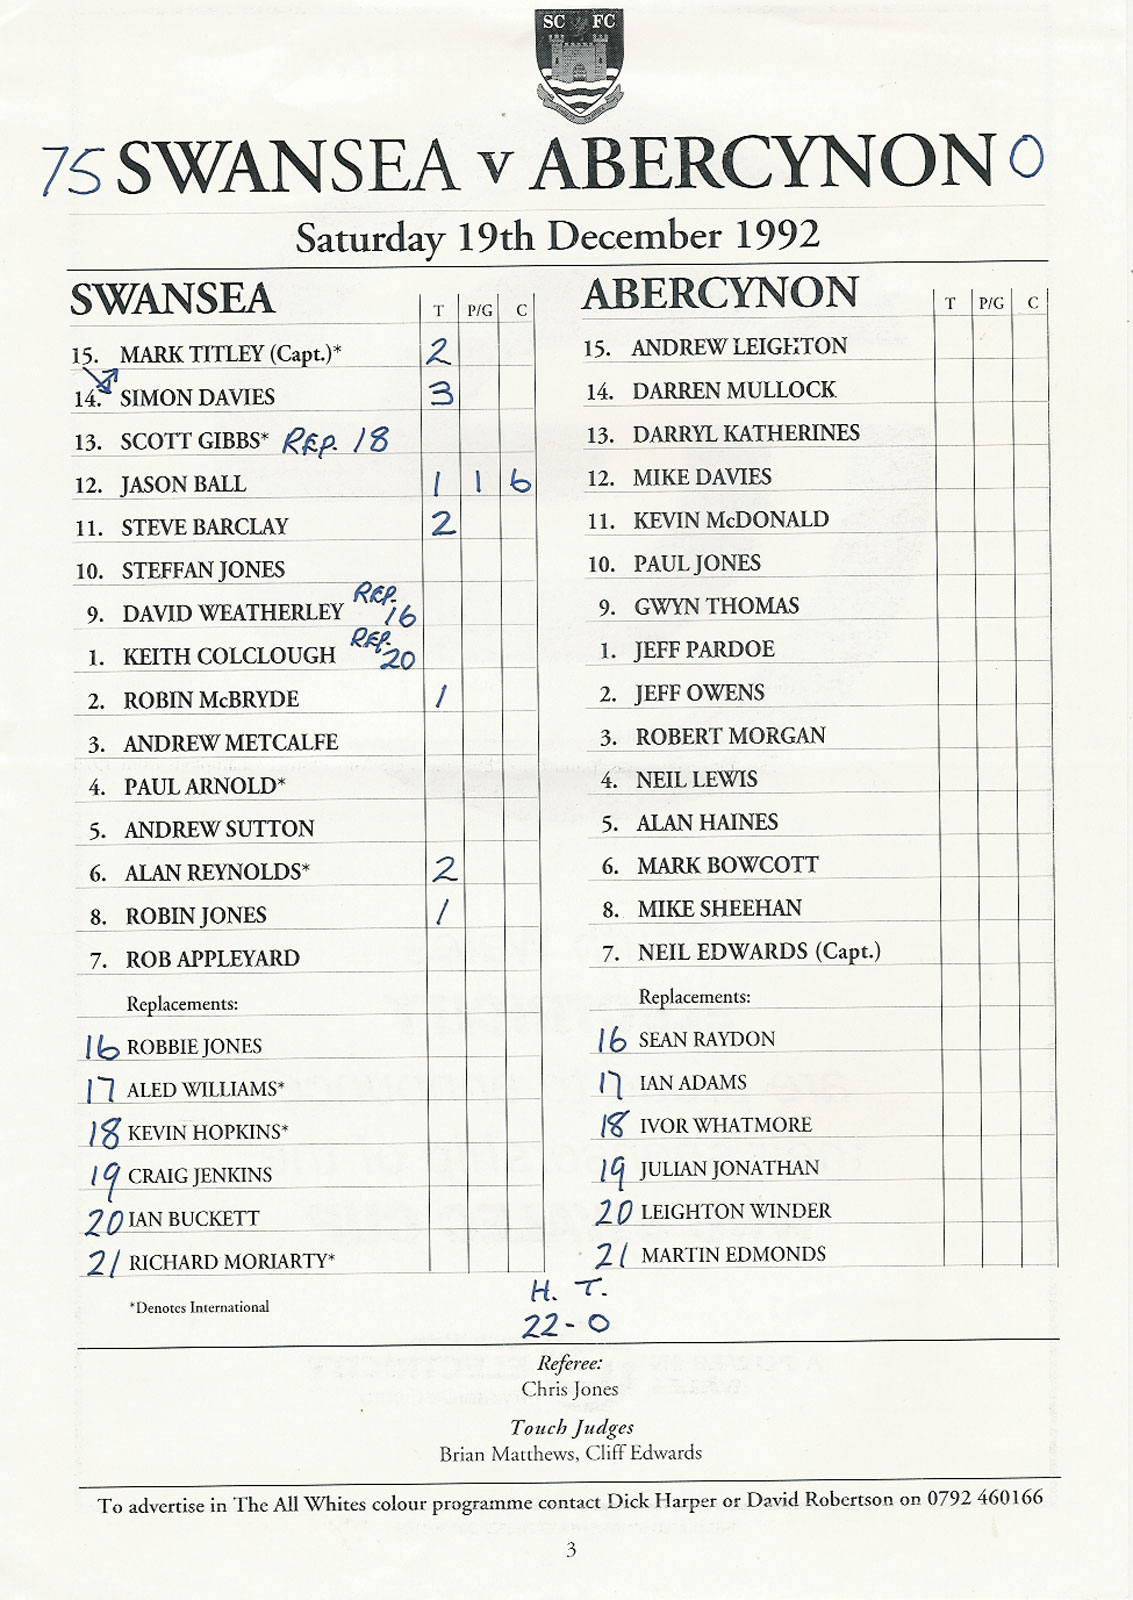 SC FC
75 SWANSEA v ABERCYNON 0
Saturday 19th December 1992
SWANSEA T P/G C
15. MARK TITLEY (Capt.)* 2
14. SIMON DAVIES 3
13. SCOTT GIBBS* REP. 18
12. JASON BALL 1 1 6
11. STEVE BARCLAY 2
10. STEFFAN JONES
9. DAVID WEATHERLEY REP. 16
1. KEITH COLCLOUGH REP. 20
2. ROBIN McBRYDE 1
3. ANDREW METCALFE
4. PAUL ARNOLD*
5. ANDREW SUTTON
6. ALAN REYNOLDS* 2
8. ROBIN JONES 1
7. ROB APPLEYARD
Replacements:
16 ROBBIE JONES
17 ALED WILLIAMS*
18 KEVIN HOPKINS*
19 CRAIG JENKINS
20 IAN BUCKETT
21 RICHARD MORIARTY*
*Denotes International
ABERCYNON T P/G C
15. ANDREW LEIGHTON
14. DARREN MULLOCK
13. DARRYL KATHERINES
12. MIKE DAVIES
11. KEVIN McDONALD
10. PAUL JONES
9. GWYN THOMAS
1. JEFF PARDOE
2. JEFF OWENS
3. ROBERT MORGAN
4. NEIL LEWIS
5. ALAN HAINES
6. MARK BOWCOTT
8. MIKE SHEEHAN
7. NEIL EDWARDS (Capt.)
Replacements:
16 SEAN RAYDON
17 IAN ADAMS
18 IVOR WHATMORE
19 JULIAN JONATHAN
20 LEIGHTON WINDER
21 MARTIN EDMONDS
H. T.
22-0
Referee:
Chris Jones
Touch Judges
Brian Matthews, Cliff Edwards
To advertise in The All Whites colour programme contact Dick Harper or David Robertson on 0792 460166
3